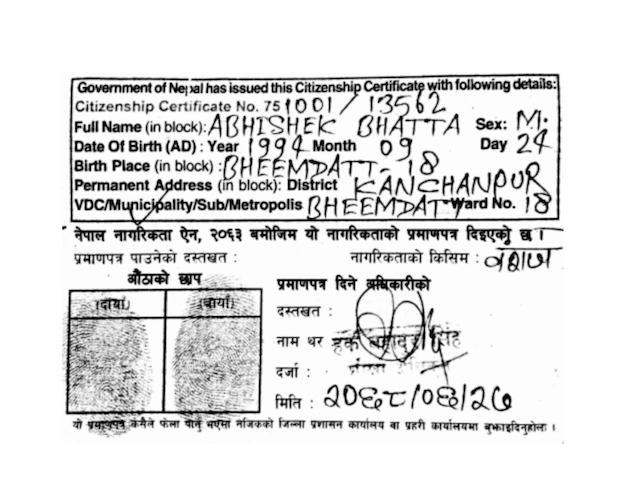 Government of Nepal has issued this Citizenship Certificate with following details:
Citizenship Certificate No. 751001/13562
Full Name (in block): ABHISHEK BHATTA Sex: M.
Date Of Birth (AD) : Year 1994 Month 09 Day 24
Birth Place (in block) : BHEEMDATT-18
Permanent Address (in block): District KANCHANPUR
VDC/Municipality/Sub/Metropolis BHEEMDATT Ward No. 18
नेपाल नागरिकता ऐन, २०६३ बमोजिम यो नागरिकताको प्रमाणपत्र दिइएको छ ।
प्रमाणपत्र पाउनेको दस्तखत : नागरिकताको किसिम : वंशज
औंठाको छाप
(दायाँ) (बायाँ)
प्रमाणपत्र दिने अधिकारीको
दस्तखत :
नाम थर बहादुर सिंह
दर्जा :
मिति : २०६८/०६/२७
यो प्रमाणपत्र कसैले फेला पार्नु भएमा नजिकको जिल्ला प्रशासन कार्यालय वा प्रहरी कार्यालयमा बुझाइदिनुहोला ।